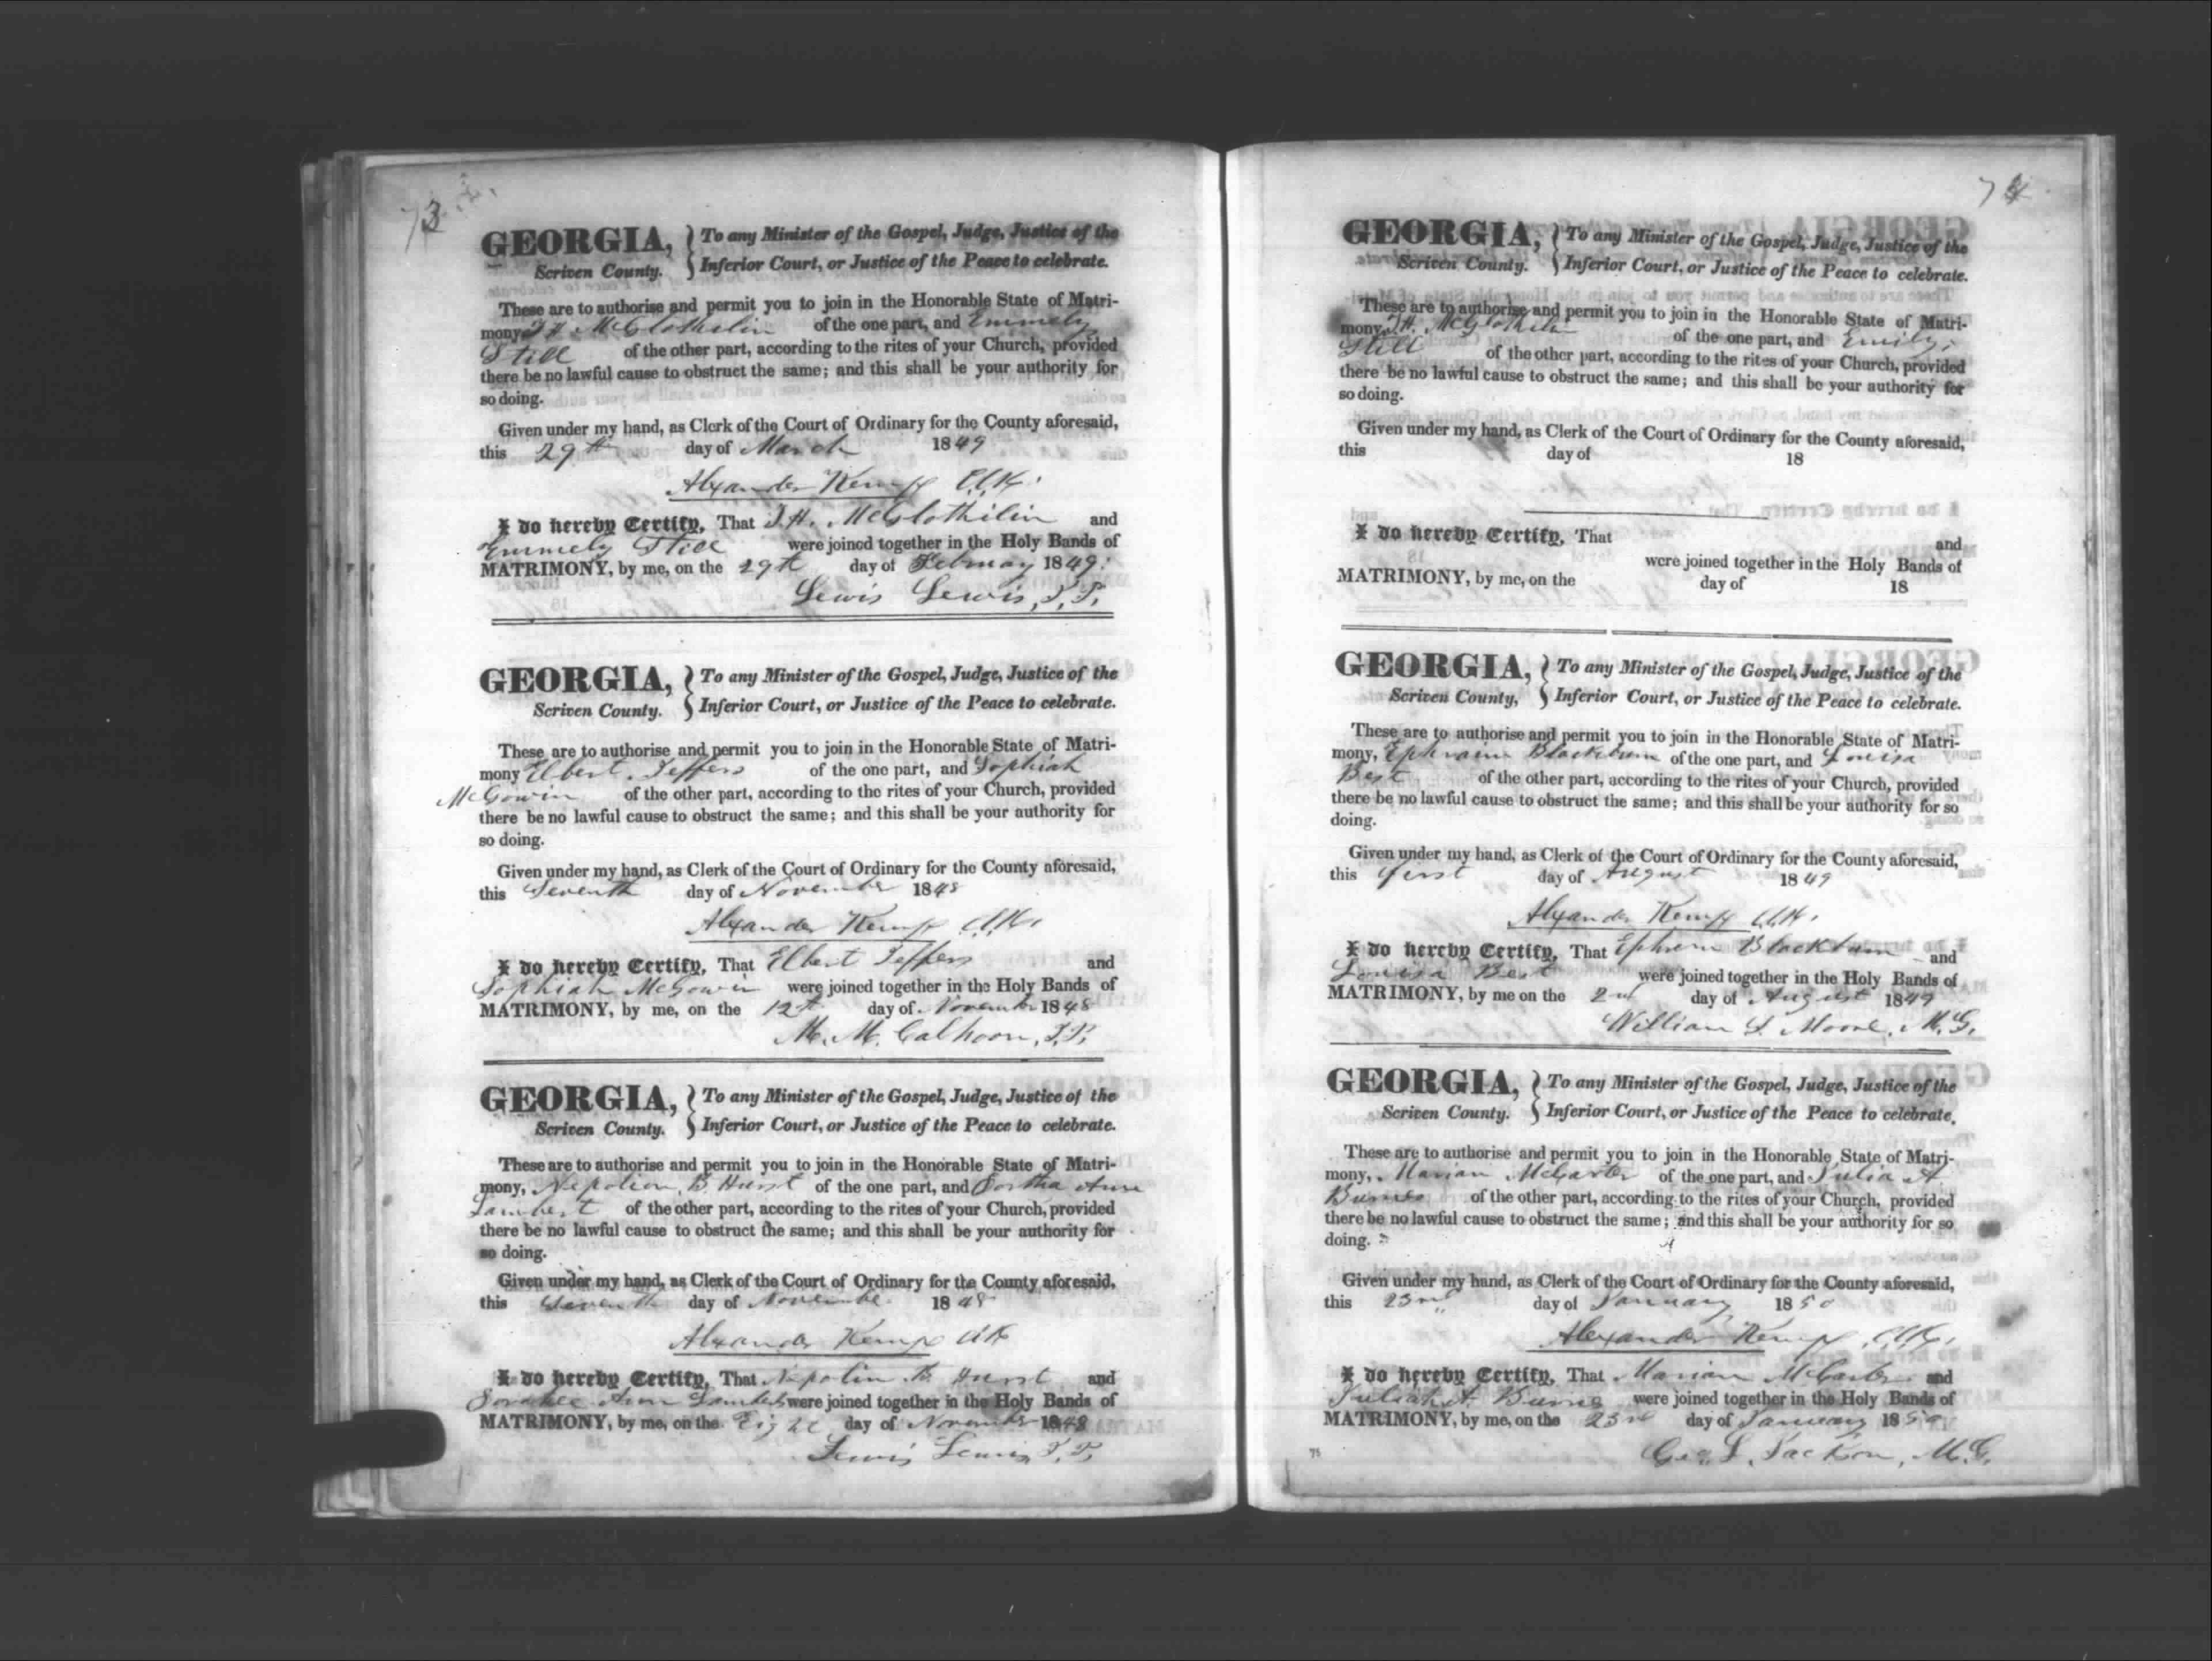 73
GEORGIA, } To any Minister of the Gospel, Judge, Justice of the
Scriven County. } Inferior Court, or Justice of the Peace to celebrate.
These are to authorise and permit you to join in the Honorable State of Matri-
mony J. H. McGlothilin of the one part, and Emmely
Still of the other part, according to the rites of your Church, provided
there be no lawful cause to obstruct the same; and this shall be your authority for
so doing.
Given under my hand, as Clerk of the Court of Ordinary for the County aforesaid,
this 29th day of March 1849
Alexander Kemp
I do hereby Certify, That J. H. McGlothilin and
Emmely Still were joined together in the Holy Bands of
MATRIMONY, by me, on the 29th day of February 1849.
Lewis Lewis, J.P.
GEORGIA, } To any Minister of the Gospel, Judge, Justice of the
Scriven County. } Inferior Court, or Justice of the Peace to celebrate.
These are to authorise and permit you to join in the Honorable State of Matri-
mony Elbert Jeffers of the one part, and Sophiah
McGowin of the other part, according to the rites of your Church, provided
there be no lawful cause to obstruct the same; and this shall be your authority for
so doing.
Given under my hand, as Clerk of the Court of Ordinary for the County aforesaid,
this Seventh day of November 1848
Alexander Kemp
I do hereby Certify, That Elbert Jeffers and
Sophiah McGowin were joined together in the Holy Bands of
MATRIMONY, by me, on the 12th day of November 1848
M. M. Calhoon, J.P.
GEORGIA, } To any Minister of the Gospel, Judge, Justice of the
Scriven County. } Inferior Court, or Justice of the Peace to celebrate.
These are to authorise and permit you to join in the Honorable State of Matri-
mony, Nepolion B Hurst of the one part, and Ann
Lambert of the other part, according to the rites of your Church, provided
there be no lawful cause to obstruct the same; and this shall be your authority for
so doing.
Given under my hand, as Clerk of the Court of Ordinary for the County aforesaid,
this Seventh day of November 1848
Alexander Kemp
I do hereby Certify, That Nepolin B Hurst and
Ann Lambert were joined together in the Holy Bands of
MATRIMONY, by me, on the Eight day of November 1848
Lewis Lewis, J.P.
74
GEORGIA, } To any Minister of the Gospel, Judge, Justice of the
Scriven County. } Inferior Court, or Justice of the Peace to celebrate.
These are to authorise and permit you to join in the Honorable State of Matri-
mony, J. H. McGlothilin of the one part, and Emily
Still of the other part, according to the rites of your Church, provided
there be no lawful cause to obstruct the same; and this shall be your authority for
so doing.
Given under my hand, as Clerk of the Court of Ordinary for the County aforesaid,
this day of 18
I do hereby Certify, That and
were joined together in the Holy Bands of
MATRIMONY, by me, on the day of 18
GEORGIA, } To any Minister of the Gospel, Judge, Justice of the
Scriven County, } Inferior Court, or Justice of the Peace to celebrate.
These are to authorise and permit you to join in the Honorable State of Matri-
mony, Ephraim Blackburn of the one part, and Louisa
Best of the other part, according to the rites of your Church, provided
there be no lawful cause to obstruct the same; and this shall be your authority for so
doing.
Given under my hand, as Clerk of the Court of Ordinary for the County aforesaid,
this first day of August 1849
Alexander Kemp
I do hereby Certify, That Ephrem Blackburn and
Louisa Best were joined together in the Holy Bands of
MATRIMONY, by me on the 2nd day of August 1849
William L. Moore, M.G.
GEORGIA, } To any Minister of the Gospel, Judge, Justice of the
Scriven County. } Inferior Court, or Justice of the Peace to celebrate.
These are to authorise and permit you to join in the Honorable State of Matri-
mony, Marian McCarter of the one part, and Julia A
Burns of the other part, according to the rites of your Church, provided
there be no lawful cause to obstruct the same; and this shall be your authority for so
doing.
Given under my hand, as Clerk of the Court of Ordinary for the County aforesaid,
this 23rd day of January 1850
Alexander Kemp
I do hereby Certify, That Marian McCarter and
Juliah A Burns were joined together in the Holy Bands of
MATRIMONY, by me, on the 23rd day of January 1850
Geo. L. Jackson, M.G.